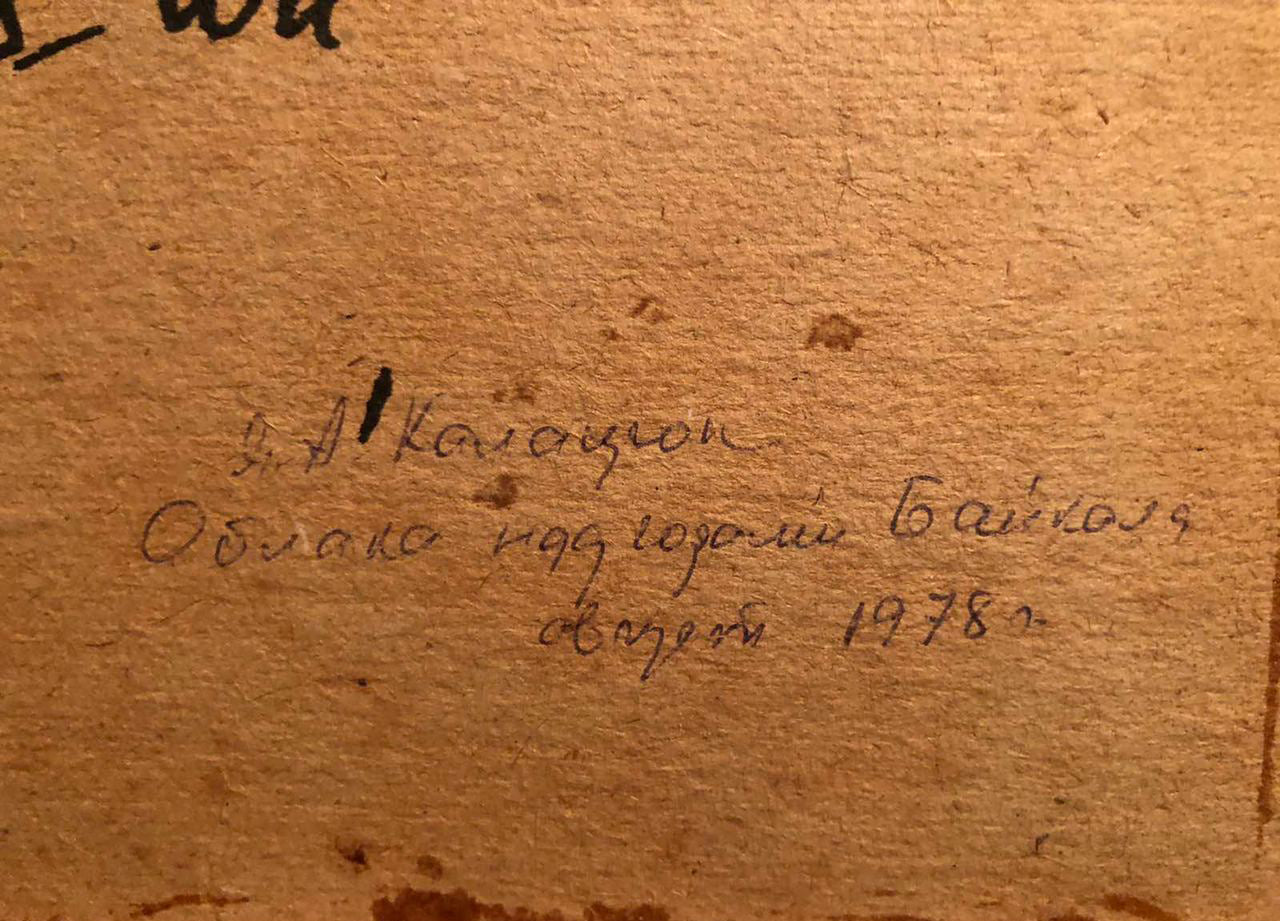 Я. А. Калацюн
Облака над горами Байкала
август 1978 г.